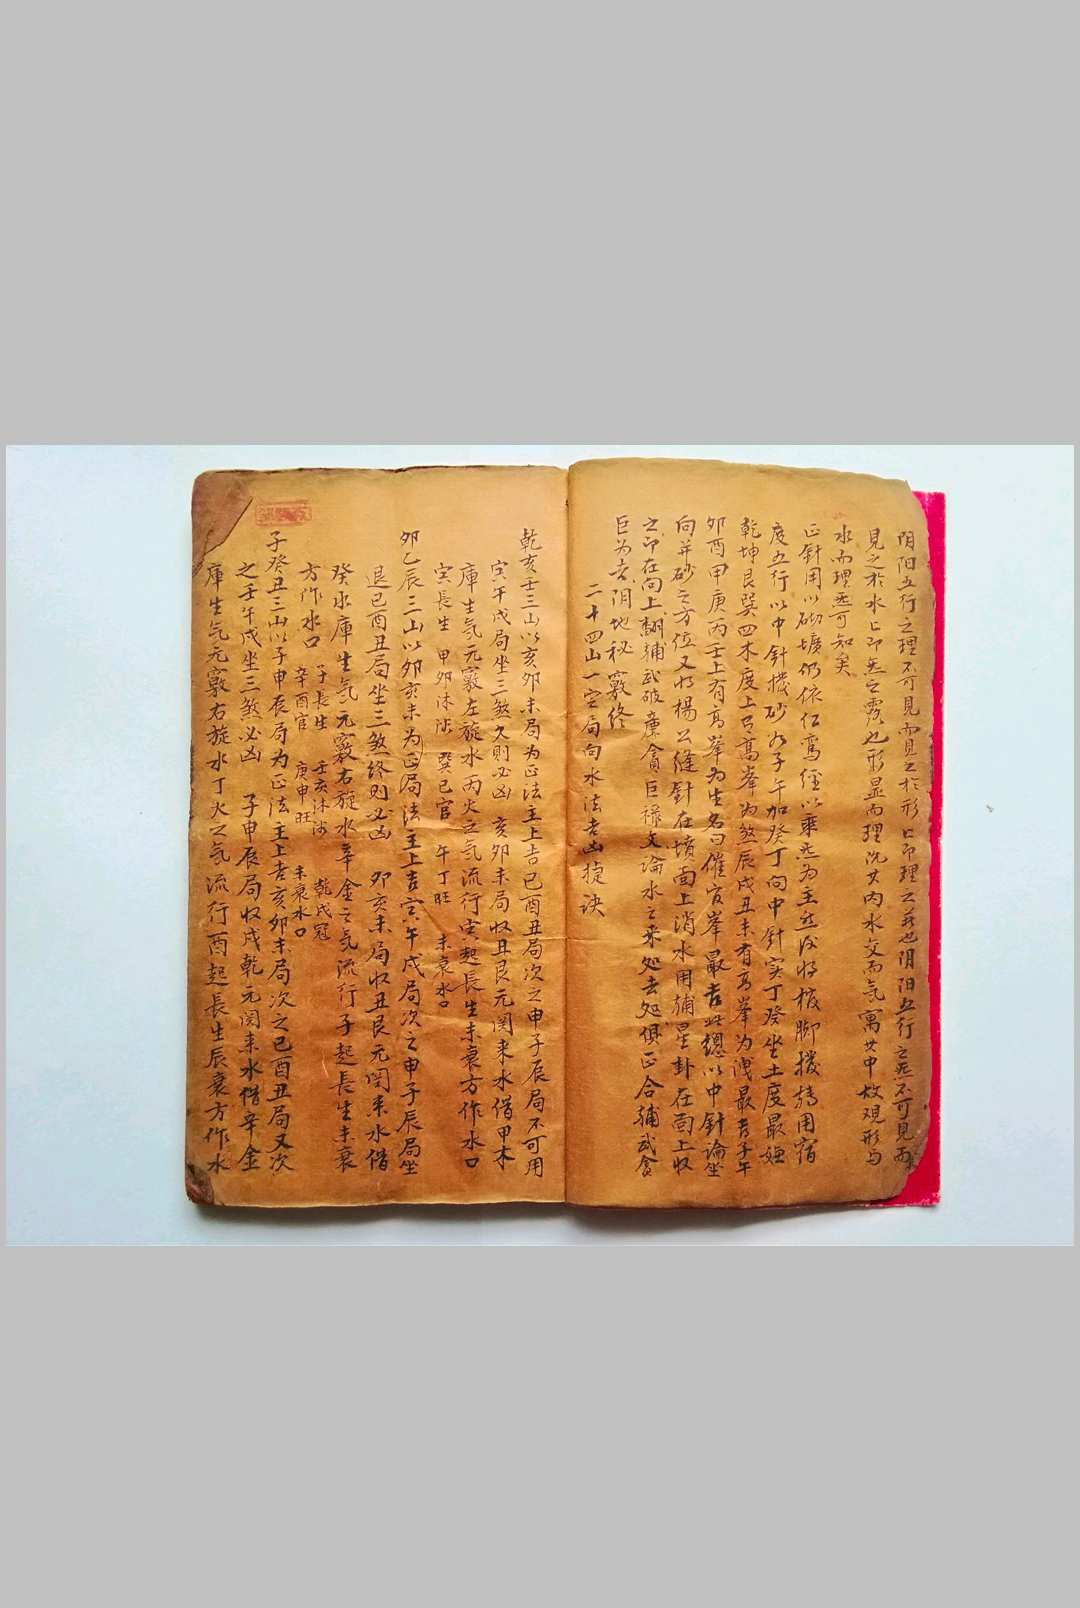 阴阳五行之理不可見而見之於形上即理之荘也阴阳五行之炁不可見而
見之於水上即炁之露也形显而理沉其内水交而气寓其中故观形与
水而理炁可知矣
正針用以砌壙仍依仁寫經以乘炁为主然後将接脚撥轉用宿
度五行以中針撥砂如子午加癸丁向中針实丁癸坐土度最嫌
乾坤艮巽四木度上有高峯为煞辰戌丑未有高峯为洩最吉子午
卯酉甲庚丙壬上有高峯为生名曰催官峯最吉此總以中針論坐
向并砂之方位又将楊公縫針在墳面上消水用辅星卦在面上收
之即在向上翻辅武破廉貪巨禄文論水之来处去处俱正合辅武貪
巨为吉阴地秘竅终
二十四山一定局向水法吉凶捷诀
乾亥壬三山以亥卯未局为正法主上吉巳酉丑局次之申子辰局不可用
寅午戌局坐三煞久則必凶 亥卯未局收丑艮元関来水借甲木
庫生気元竅左旋水丙火之气流行寅起長生未衰方作水口
寅長生 甲卯沐浴 巽巳官 午丁旺 未衰水口
卯乙辰三山以卯亥未为正局法主上吉寅午戌局次之申子辰局坐
退巳酉丑局坐三煞终則必凶 卯亥未局收丑艮元関来水借
癸水庫生气元竅右旋水辛金之气流行子起長生未衰
方作水口 子長生 壬亥沐浴 乾戌冠
辛酉官 庚申旺 未衰水口
子癸丑三山以子申辰局为正法主上吉亥卯未局次之巳酉丑局又次
之壬午戌坐三煞必凶 子申辰局收戌乾元関来水借辛金
庫生气元竅右旋水丁火之气流行酉起長生辰衰方作水